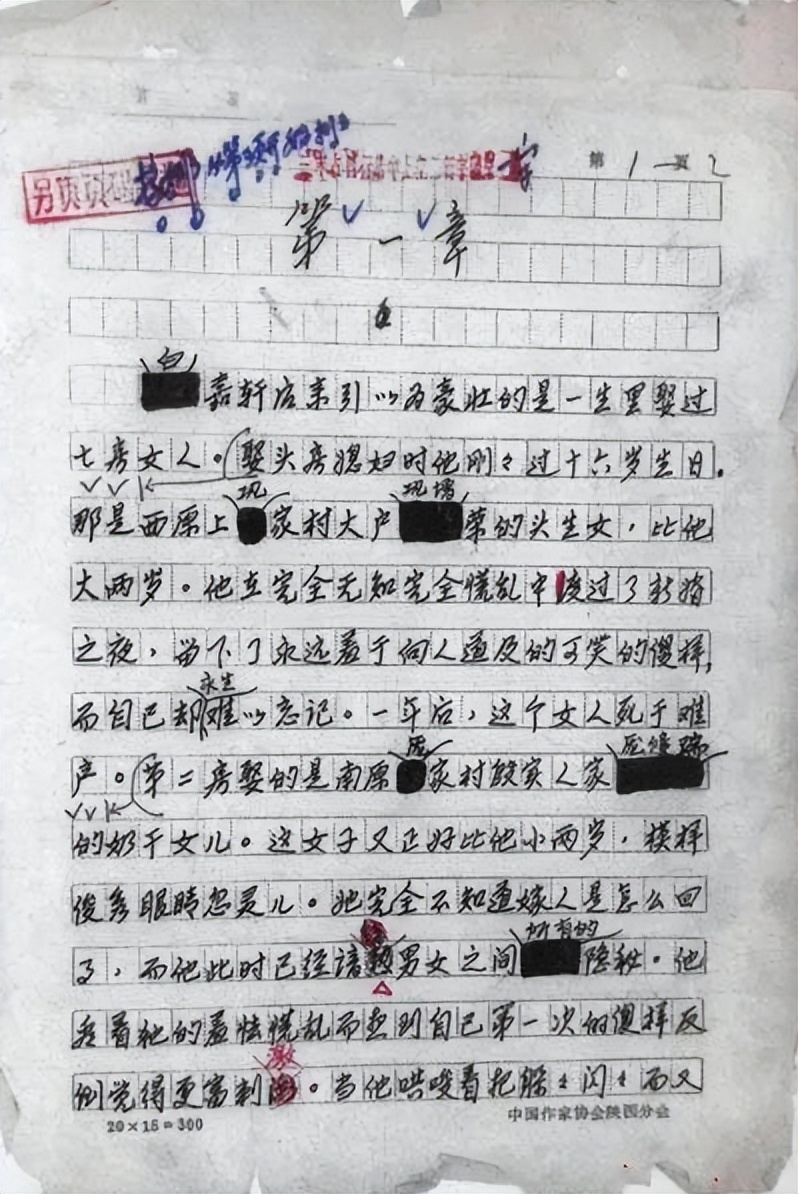 第 1 页 2
另页
第一章
白
嘉轩后来引以为豪壮的是一生里娶过
七房女人。娶头房媳妇时他刚刚过十六岁生日。
巩 巩增
那是西原上家村大户荣的头生女，比他
大两岁。他在完全无知完全慌乱中度过了新婚
之夜，留下了永远羞于向人道及的可笑的傻样，
永生
而自己却难以忘记。一年后，这个女人死于难
庞 庞修瑞
产。第二房娶的是南原家村殷实人家
的奶干女儿。这女子又正好比他小两岁，模样
俊秀眼睛忽灵儿。她完全不知道嫁人是怎么回
所有的
事，而他此时已经谙男女之间隐秘。他
看着她的羞怯慌乱而想到自己第一次的傻样反
激
倒觉得更富刺。当他哄唆着把躲躲闪闪而又
20×15=300
中国作家协会陕西分会